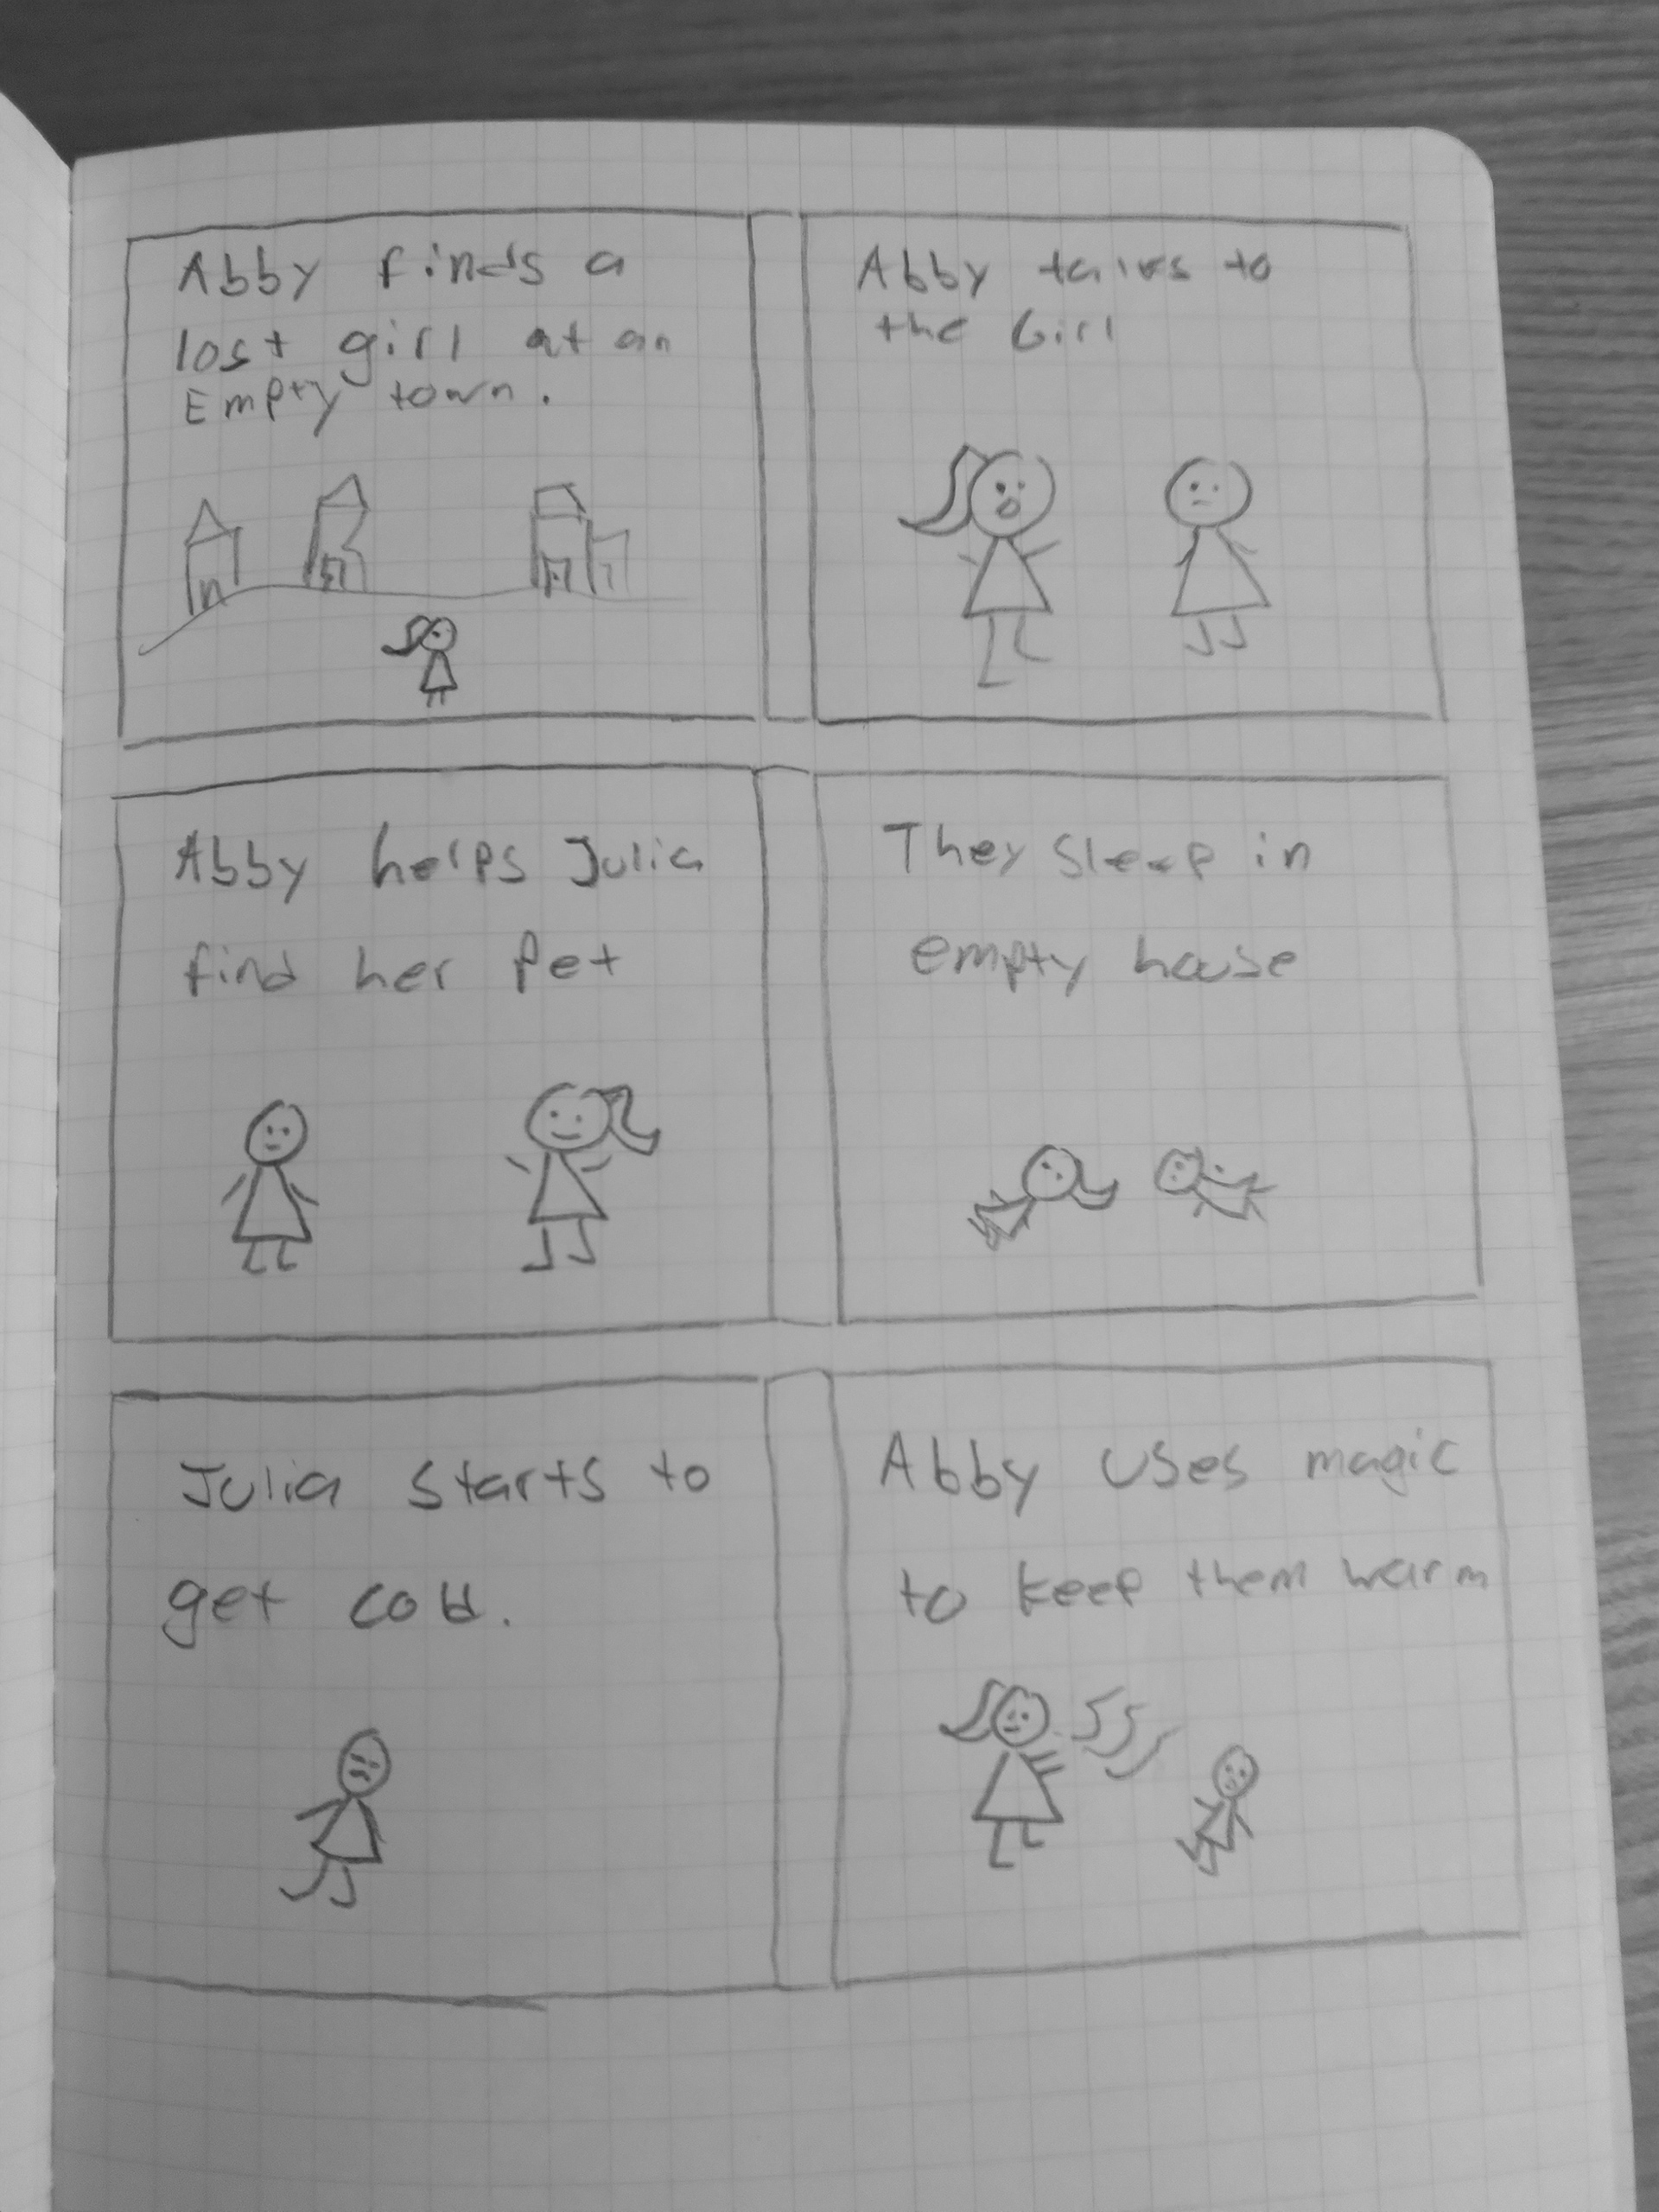 Abby finds a
lost girl at an
Empty town.
Abby talks to
the Girl
Abby helps Julia
find her Pet
They sleep in
empty house
Julia starts to
get cold.
Abby uses magic
to keep them warm